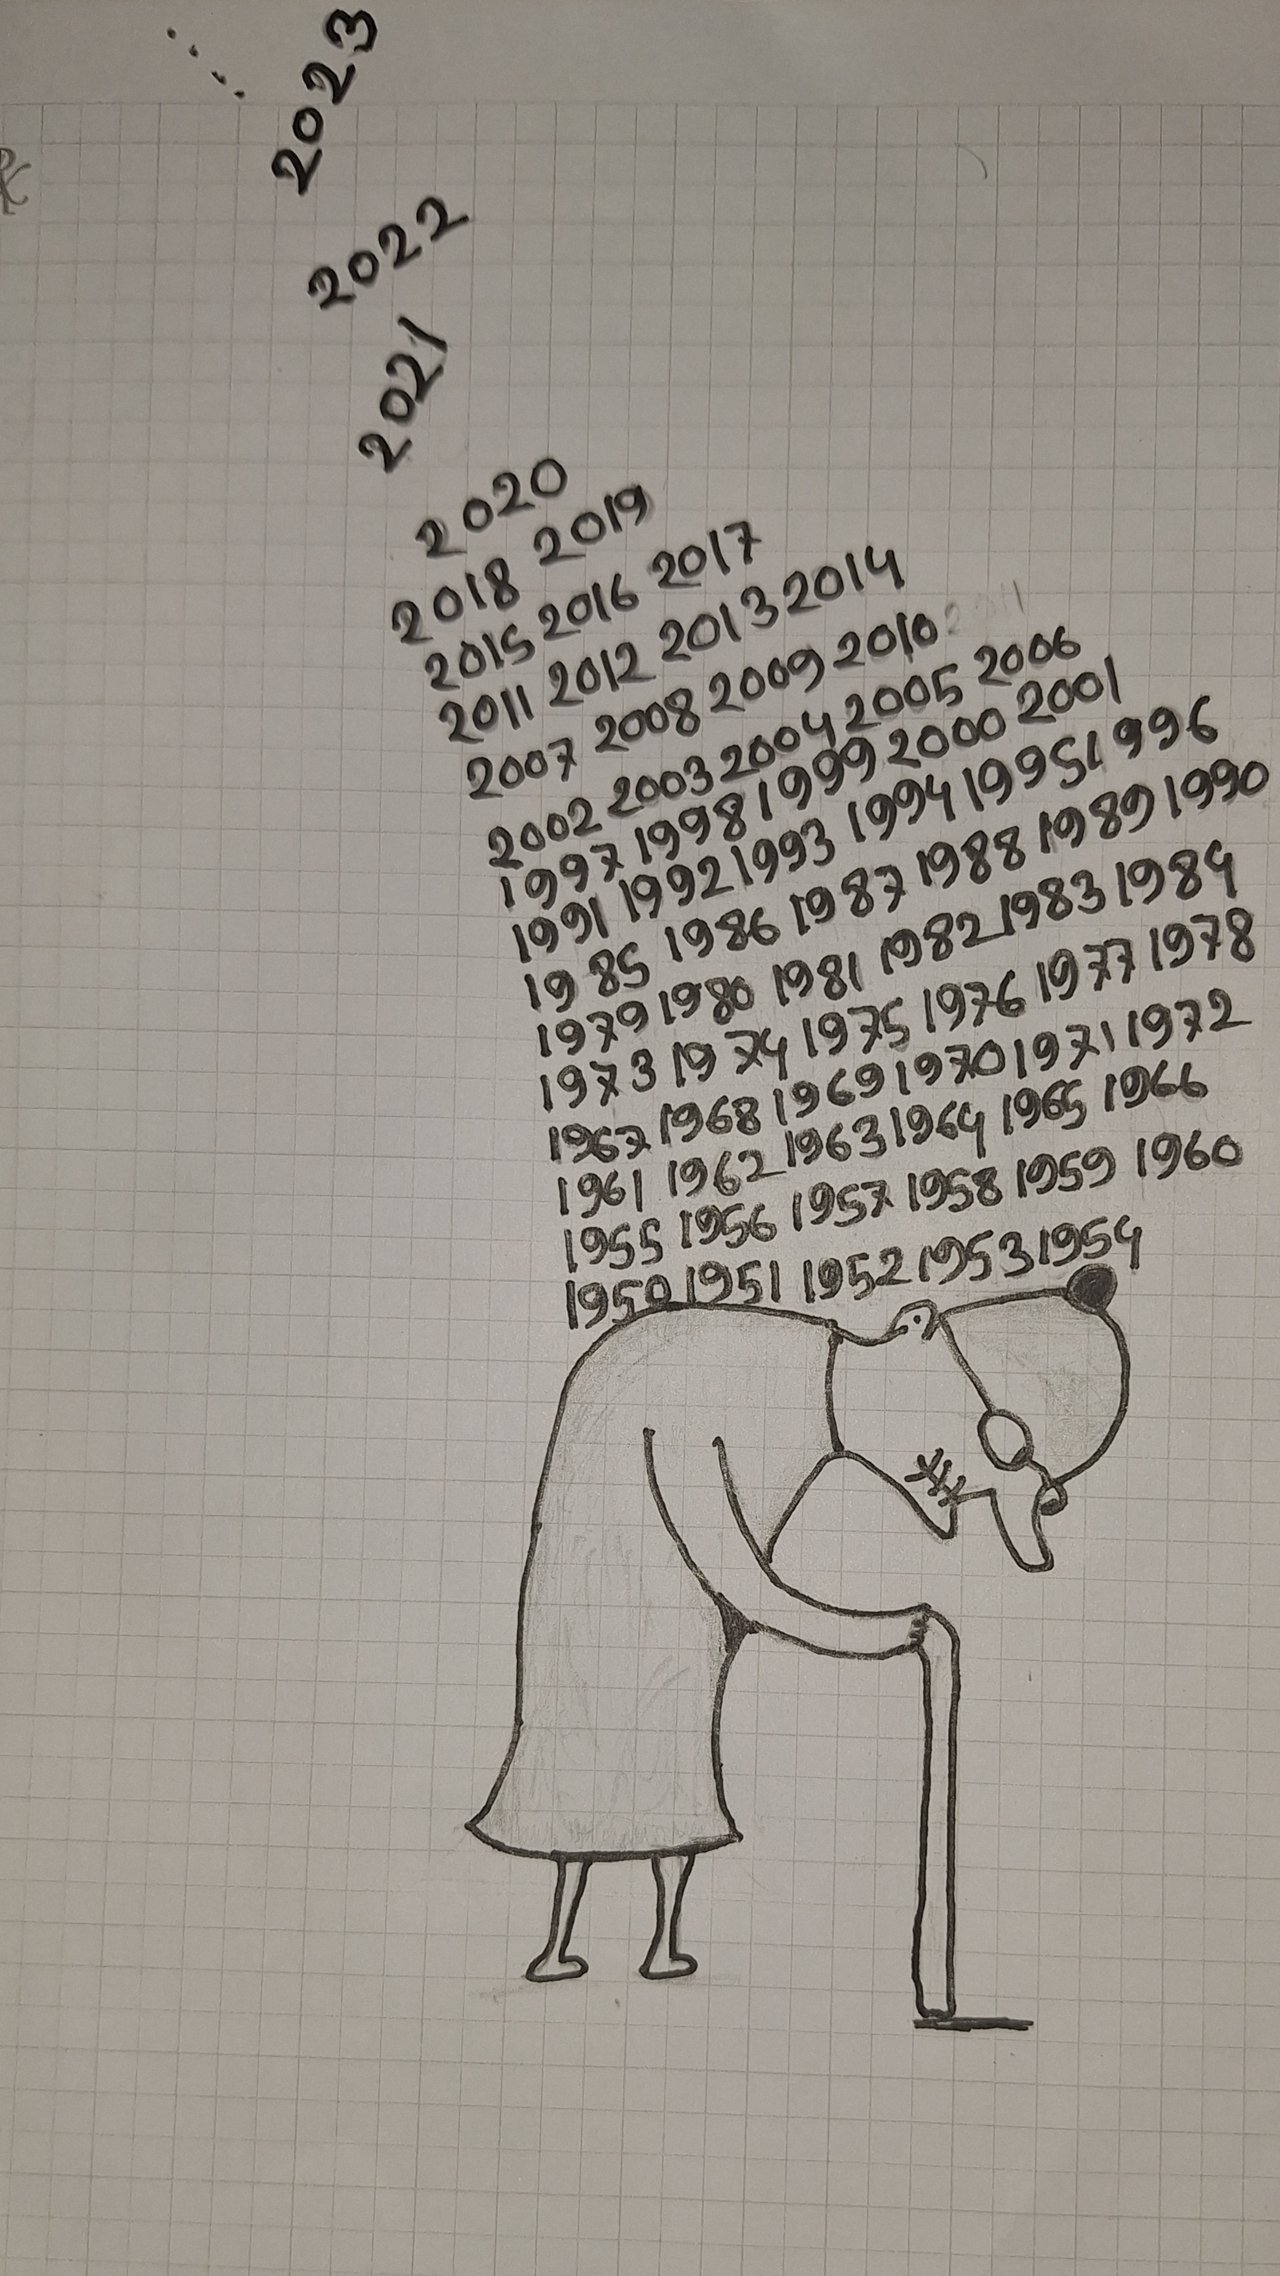 2023
2022
2021
2020
2018 2019
2015 2016 2017
2011 2012 2013 2014
2007 2008 2009 2010 2011
2002 2003 2004 2005 2006
1997 1998 1999 2000 2001
1991 1992 1993 1994 1995 1996
1985 1986 1987 1988 1989 1990
1979 1980 1981 1982 1983 1984
1973 1974 1975 1976 1977 1978
1967 1968 1969 1970 1971 1972
1961 1962 1963 1964 1965 1966
1955 1956 1957 1958 1959 1960
1950 1951 1952 1953 1954